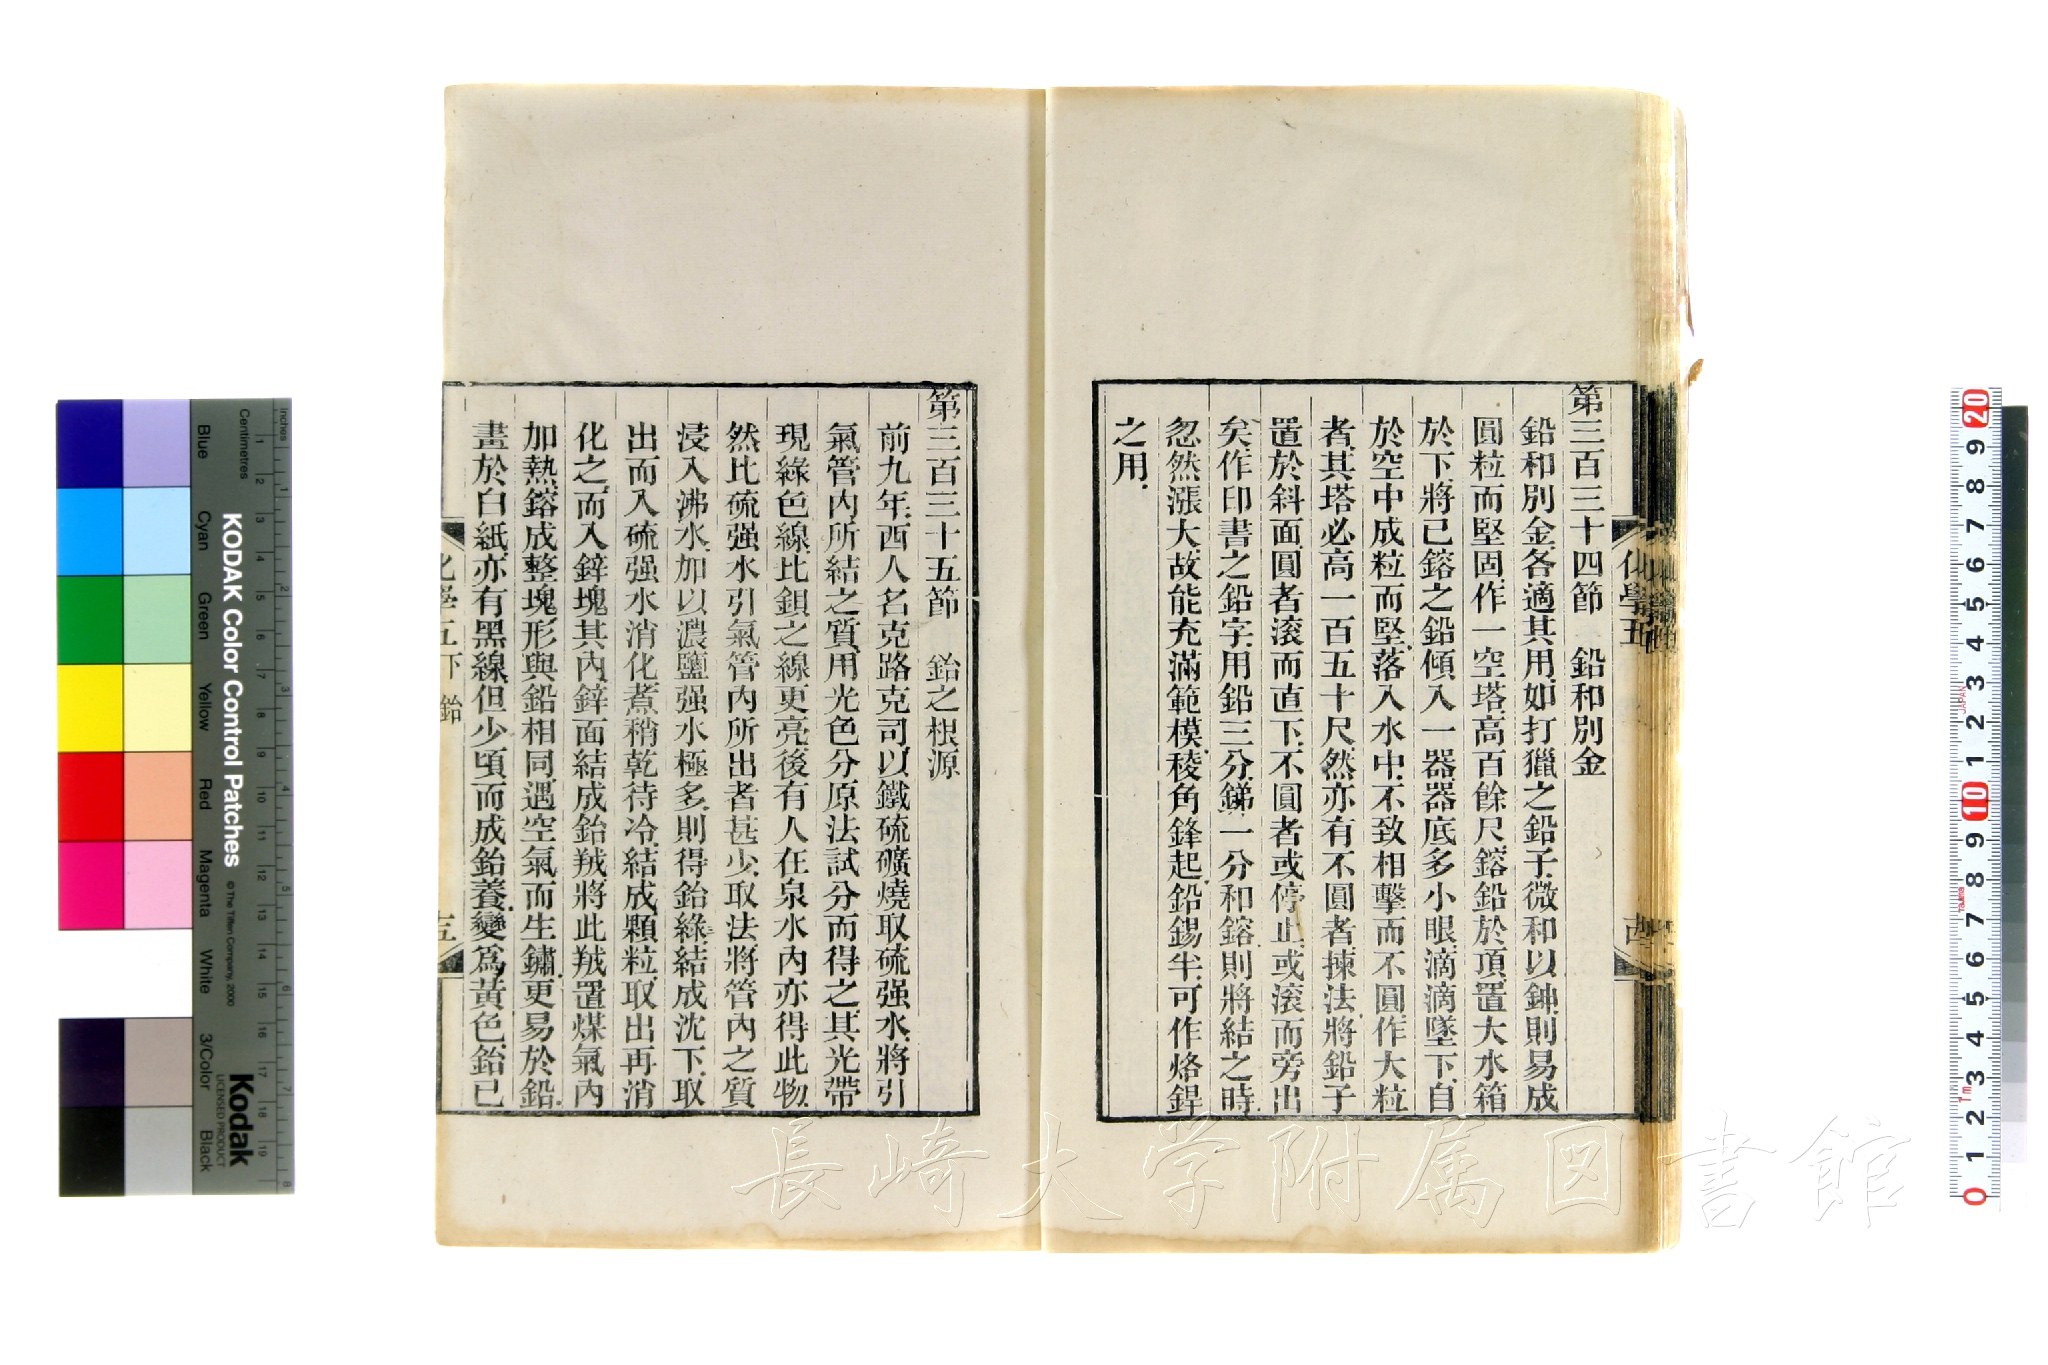 第三百三十四節　鉛和別金
鉛和別金各適其用如打獵之鉛子微和以鉮則易成
圓粒而堅固作一空塔高百餘尺鎔鉛於頂置大水箱
於下將已鎔之鉛傾入一器器底多小眼滴滴墜下自
於空中成粒而堅落入水中不致相擊而不圓作大粒
者其塔必高一百五十尺然亦有不圓者揀法將鉛子
置於斜面圓者滾而直下不圓者或停止或滾而旁出
矣作印書之鉛字用鉛三分銻一分和鎔則將結之時
忽然漲大故能充滿範模稜角鋒起鉛錫半可作烙銲
之用
化學五
第三百三十五節　鉛之根源
前九年西人名克路克司以鐵硫礦燒取硫强水將引
氣管內所結之質用光色分原法試分而得之其光帶
現綠色線比鋇之線更亮後有人在泉水內亦得此物
然比硫强水引氣管內所出者甚少取法將管內之質
浸入沸水加以濃鹽强水極多則得鉛綠結成沈下取
出而入硫强水消化煮稍乾待冷結成顆粒取出再消
化之而入鋅塊其內鋅面結成鉛羢將此羢置煤氣內
加熱鎔成整塊形與鉛相同遇空氣而生鏽更易於鉛
畫於白紙亦有黑線但少頃而成鉛養變爲黃色鉛已
化學五下 鉛
長崎大学附属図書館
KODAK Color Control Patches
© The Tiffen Company, 2000
Kodak
LICENSED PRODUCT
Inches
Centimetres
Blue
Cyan
Green
Yellow
Red
Magenta
White
3/Color
Black
1 2 3 4 5 6 7 8 9 10 11 12 13 14 15 16 17 18 19
20 9 8 7 6 5 4 3 2 1 10 9 8 7 6 5 4 3 2 1 0
JAPAN
1m